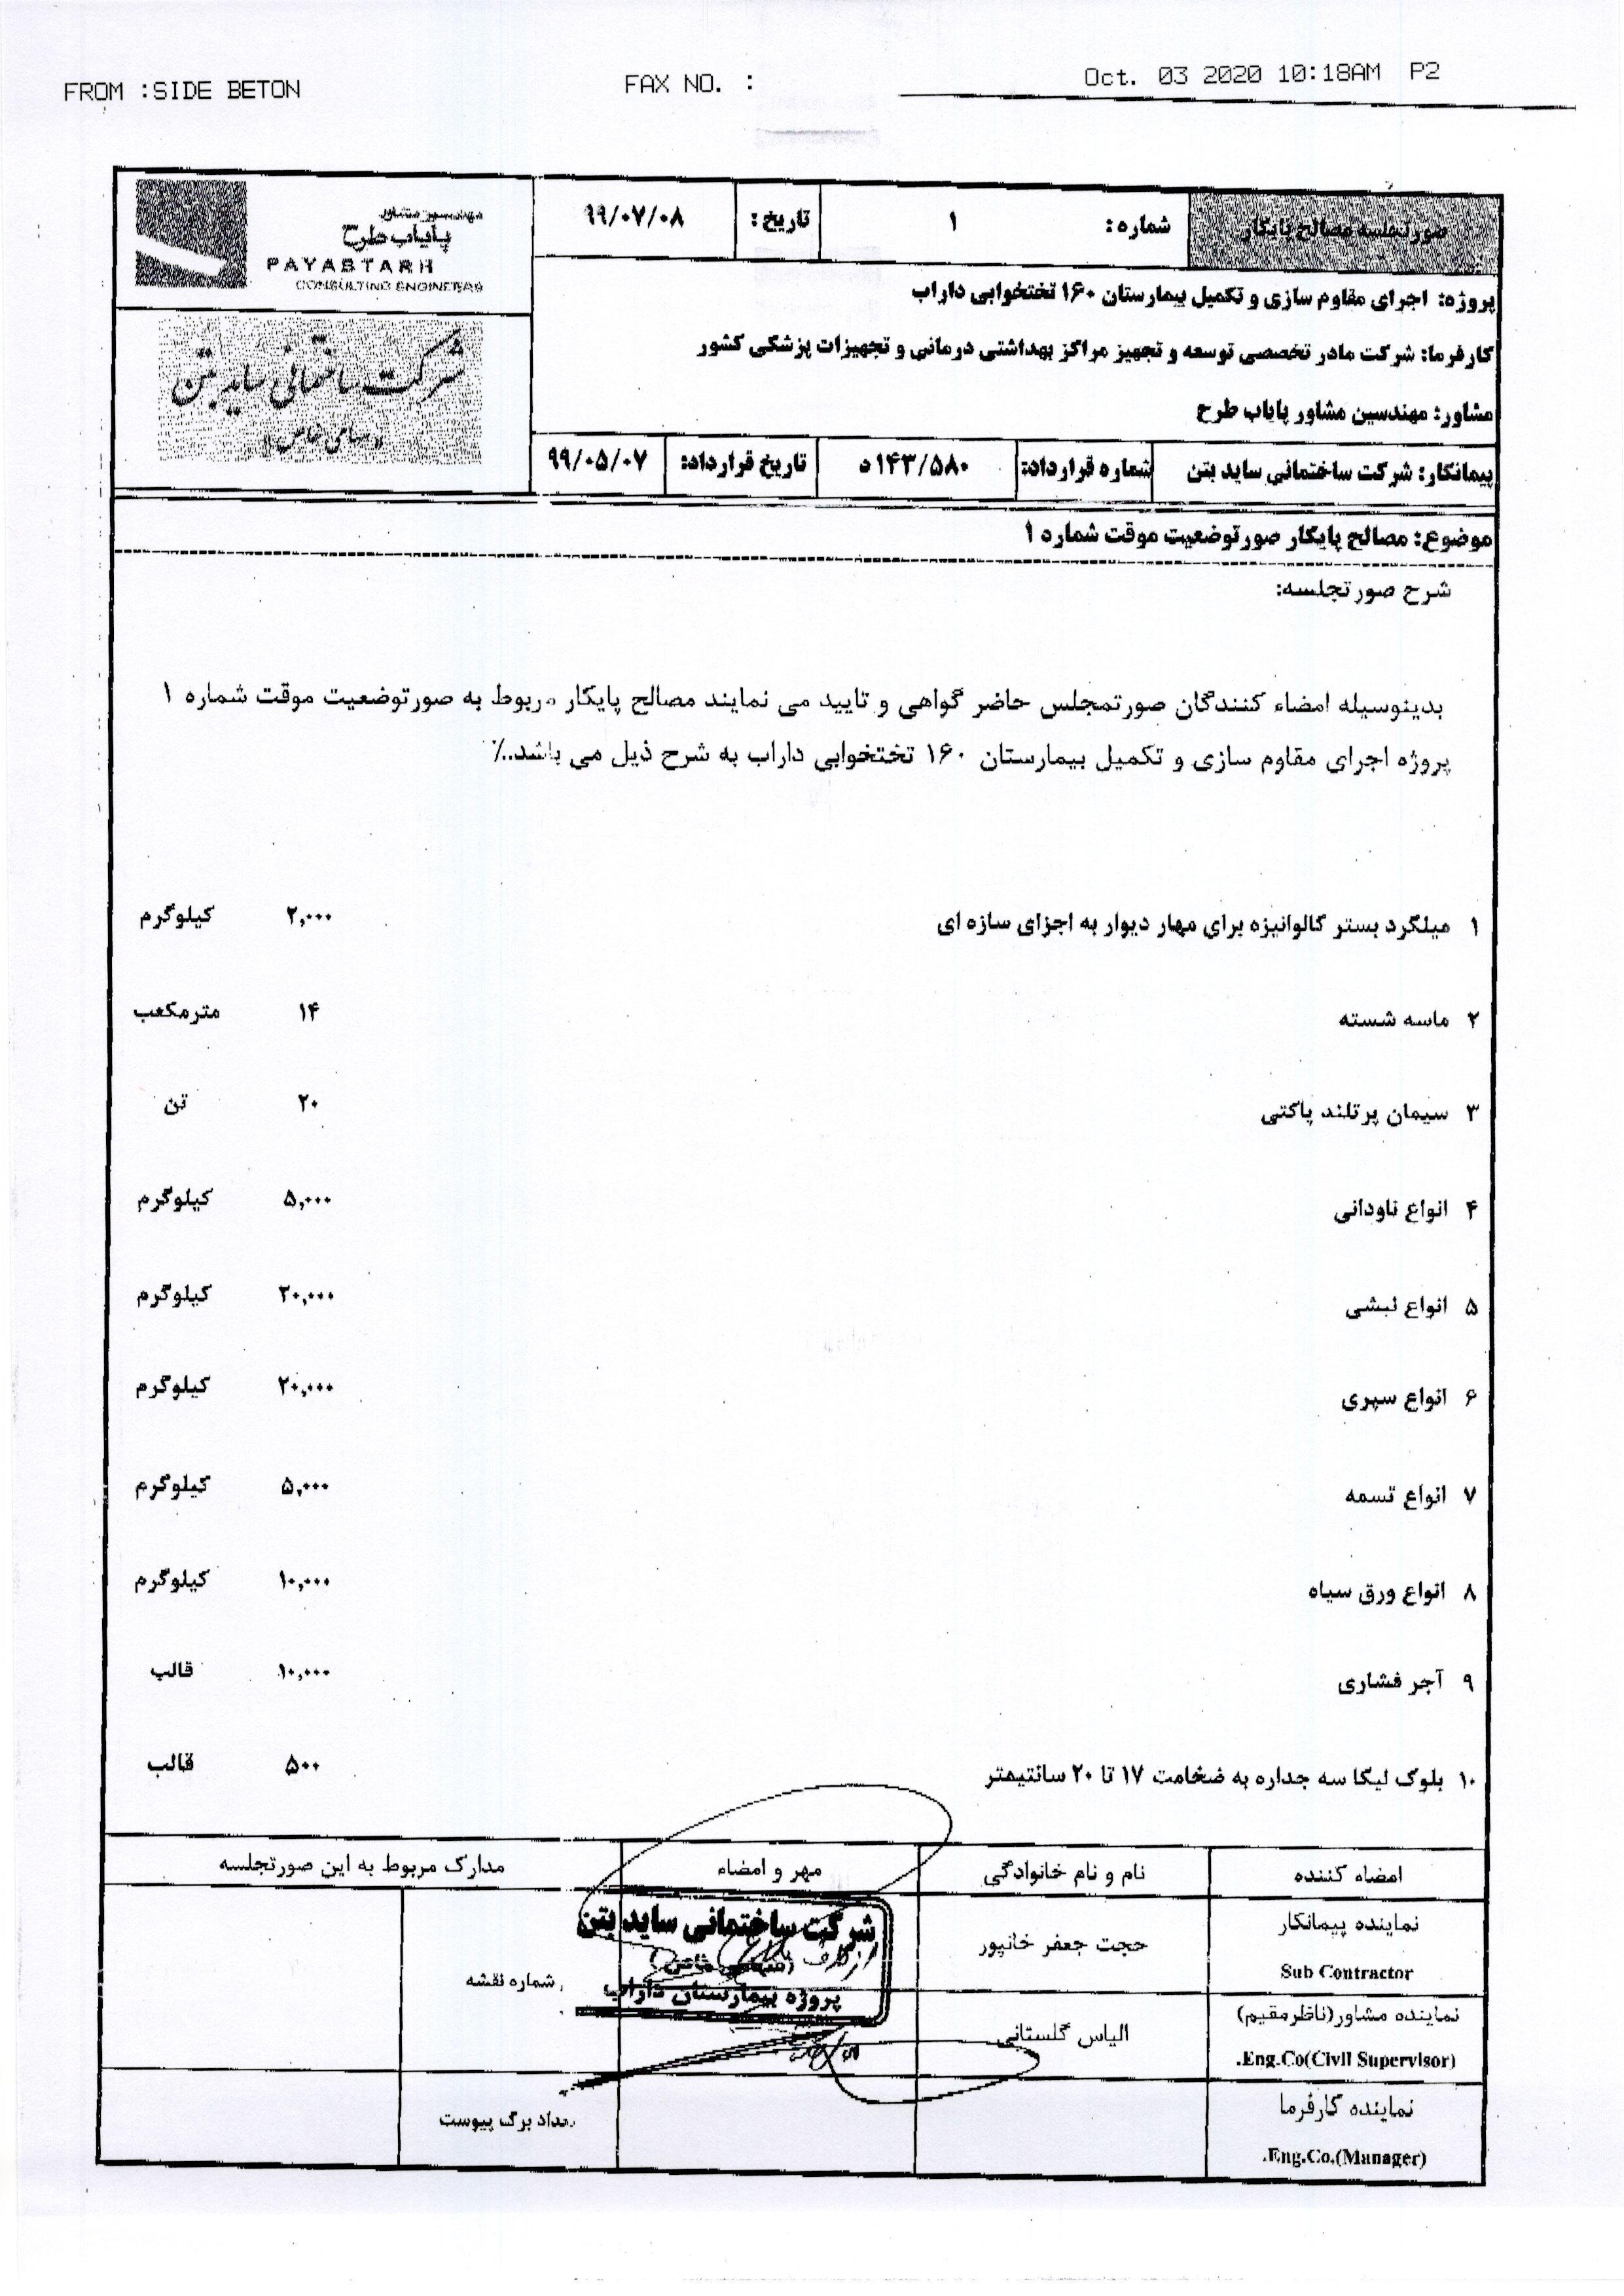 FROM :SIDE BETON FAX NO. : Oct. 03 2020 10:18AM P2
صورتجلسه مصالح پایکار شماره: ۱ تاریخ: ۹۹/۰۷/۰۸
مهندسین مشاور
پایاب طرح
PAYABTARH
CONSULTING ENGINEERS
پروژه: اجرای مقاوم سازی و تکمیل بیمارستان ۱۶۰ تختخوابی داراب
کارفرما: شرکت مادر تخصصی توسعه و تجهیز مراکز بهداشتی درمانی و تجهیزات پزشکی کشور
مشاور: مهندسین مشاور پایاب طرح
شرکت ساختمانی ساید بتن
«سهامی خاص»
پیمانکار: شرکت ساختمانی ساید بتن شماره قرارداد: ۱۴۳/۵۸۰د تاریخ قرارداد: ۹۹/۰۵/۰۷
موضوع: مصالح پایکار صورتوضعیت موقت شماره ۱
شرح صورتجلسه:
بدینوسیله امضاء کنندگان صورتمجلس حاضر گواهی و تایید می نمایند مصالح پایکار مربوط به صورتوضعیت موقت شماره ۱
پروژه اجرای مقاوم سازی و تکمیل بیمارستان ۱۶۰ تختخوابی داراب به شرح ذیل می باشد../
۱ میلگرد بستر گالوانیزه برای مهار دیوار به اجزای سازه ای ۲,۰۰۰ کیلوگرم
۲ ماسه شسته ۱۴ مترمکعب
۳ سیمان پرتلند پاکتی ۲۰ تن
۴ انواع ناودانی ۵,۰۰۰ کیلوگرم
۵ انواع نبشی ۲۰,۰۰۰ کیلوگرم
۶ انواع سپری ۲۰,۰۰۰ کیلوگرم
۷ انواع تسمه ۵,۰۰۰ کیلوگرم
۸ انواع ورق سیاه ۱۰,۰۰۰ کیلوگرم
۹ آجر فشاری ۱۰,۰۰۰ قالب
۱۰ بلوک لیکا سه جداره به ضخامت ۱۷ تا ۲۰ سانتیمتر ۵۰۰ قالب
امضاء کننده نام و نام خانوادگی مهر و امضاء مدارک مربوط به این صورتجلسه
نماینده پیمانکار
Sub Contractor
حجت جعفر خانپور
شرکت ساختمانی ساید بتن
(سهامی خاص)
پروژه بیمارستان داراب
شماره نقشه
نماینده مشاور(ناظرمقیم)
.Eng.Co(Civil Supervisor)
الیاس گلستانی
نماینده کارفرما
.Eng.Co.(Manager)
تعداد برگ پیوست